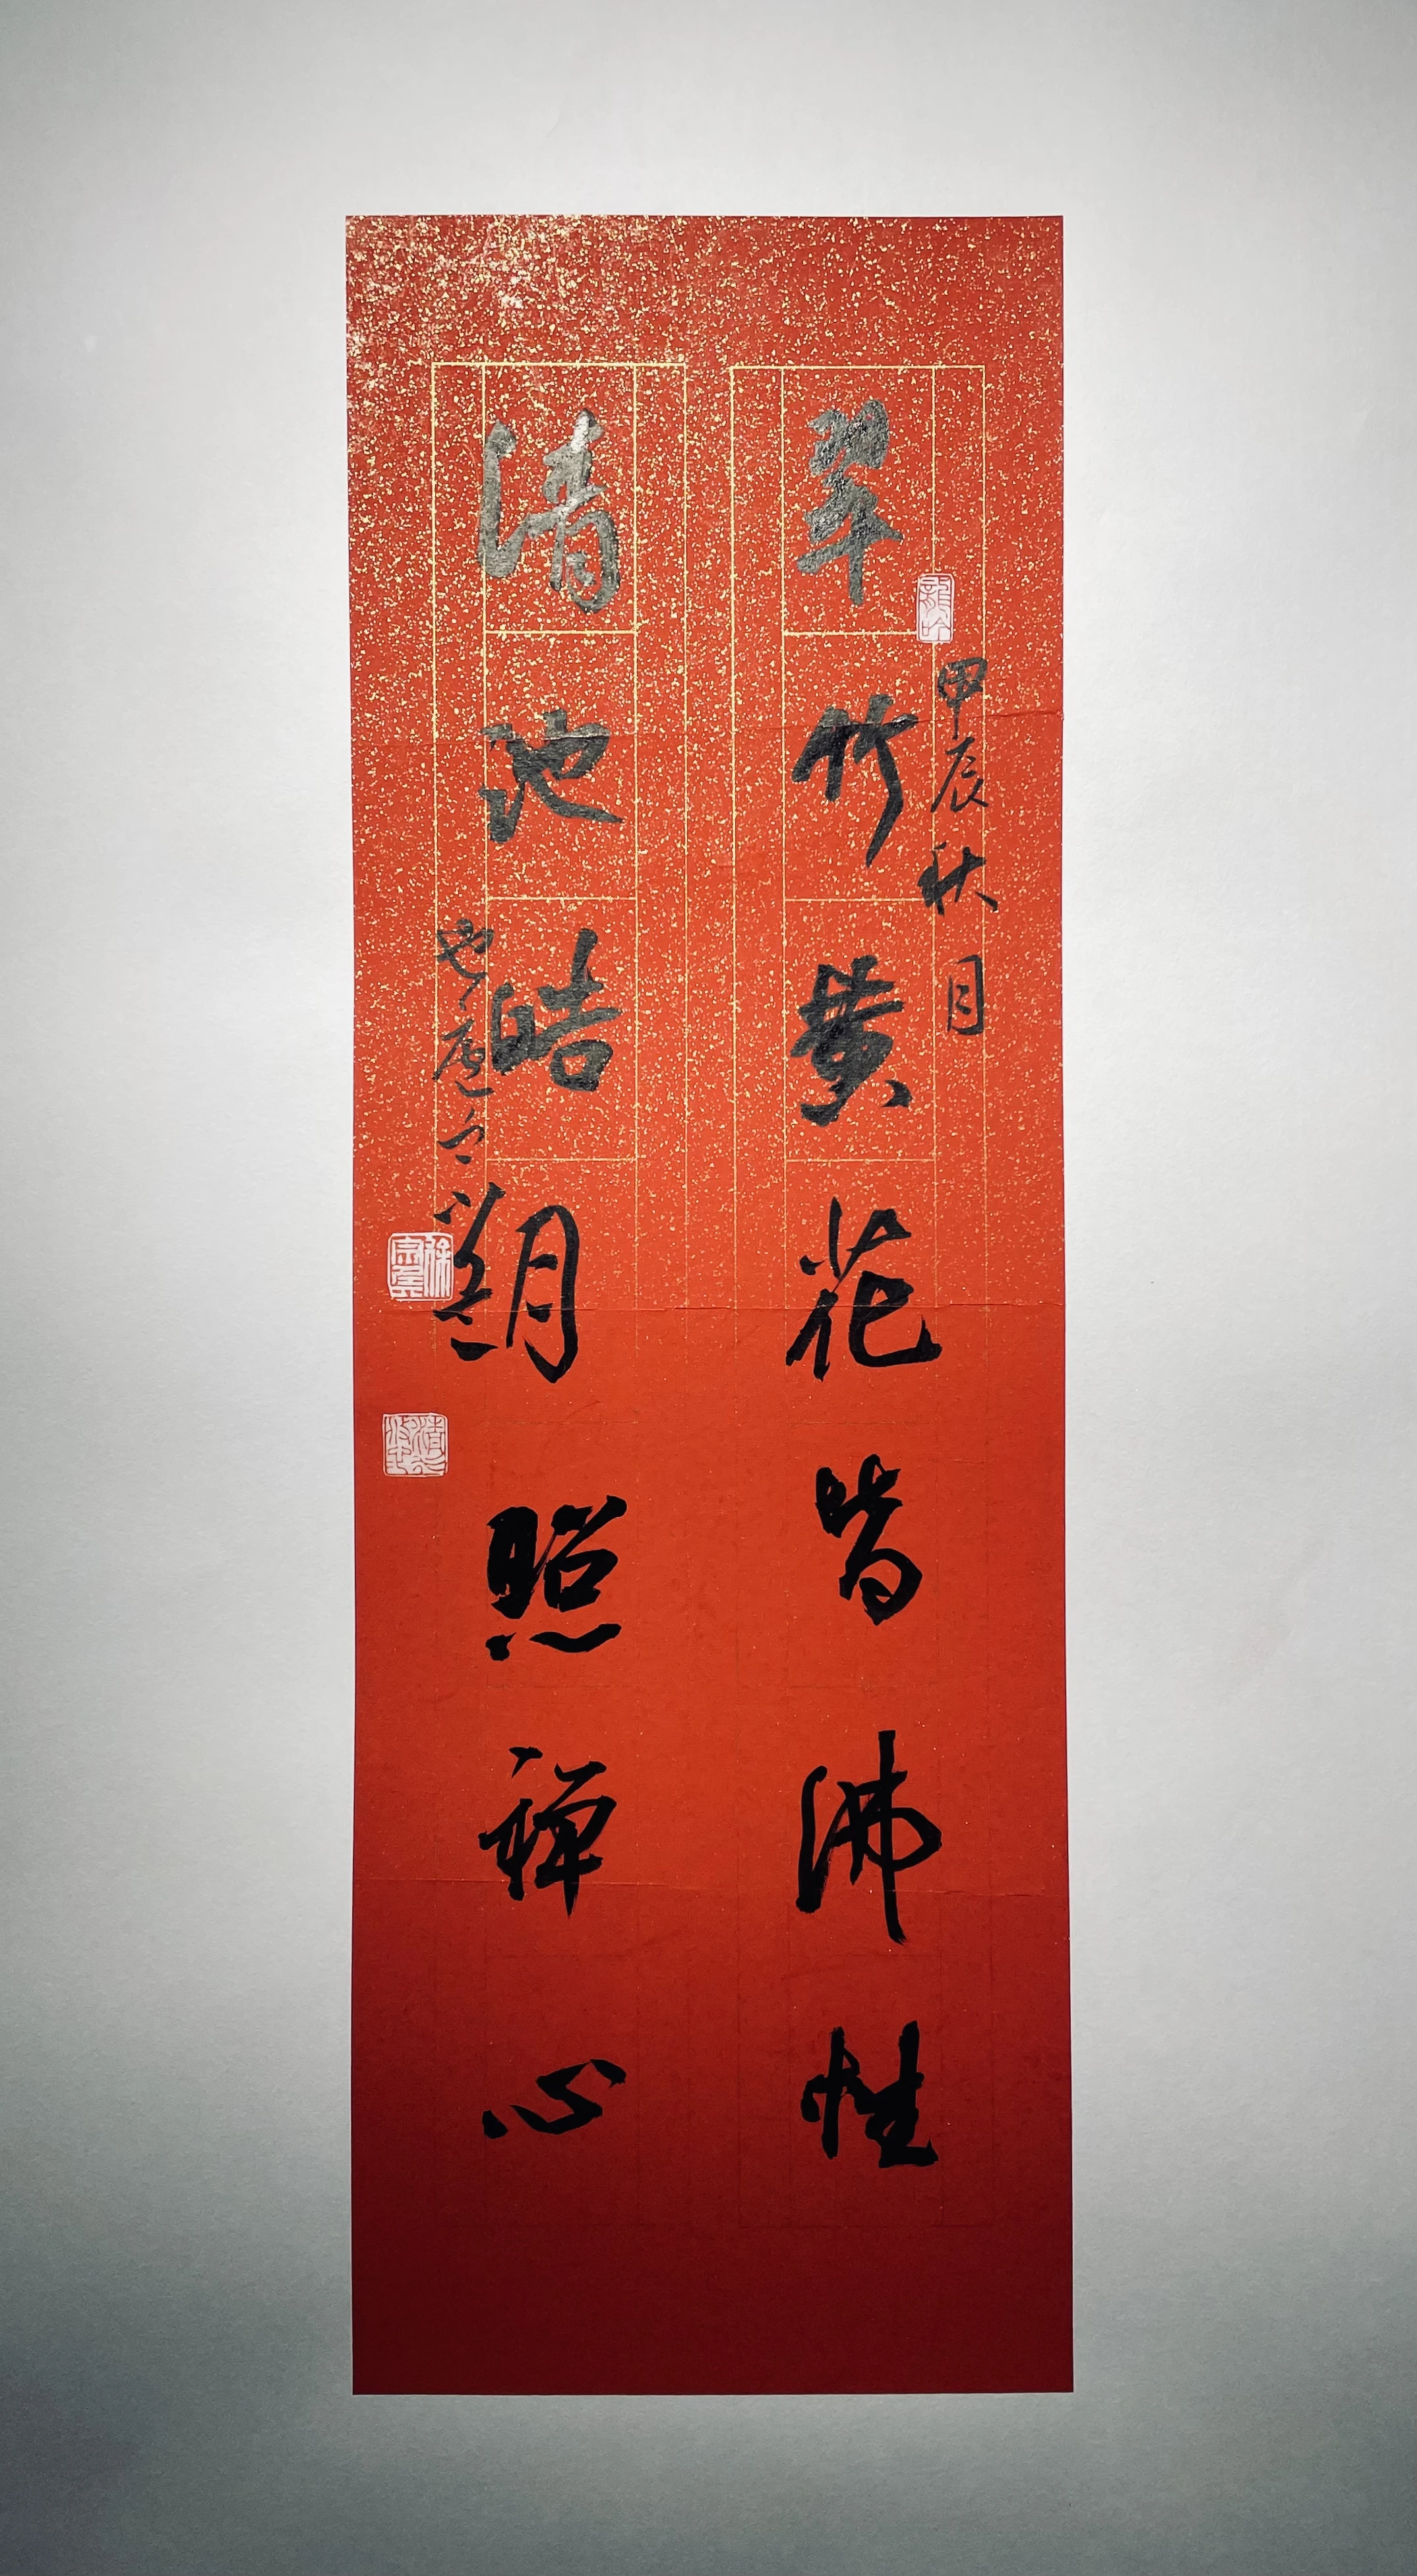 甲辰秋月
翠竹黄花皆佛性
清池皓月照禅心
龍吟